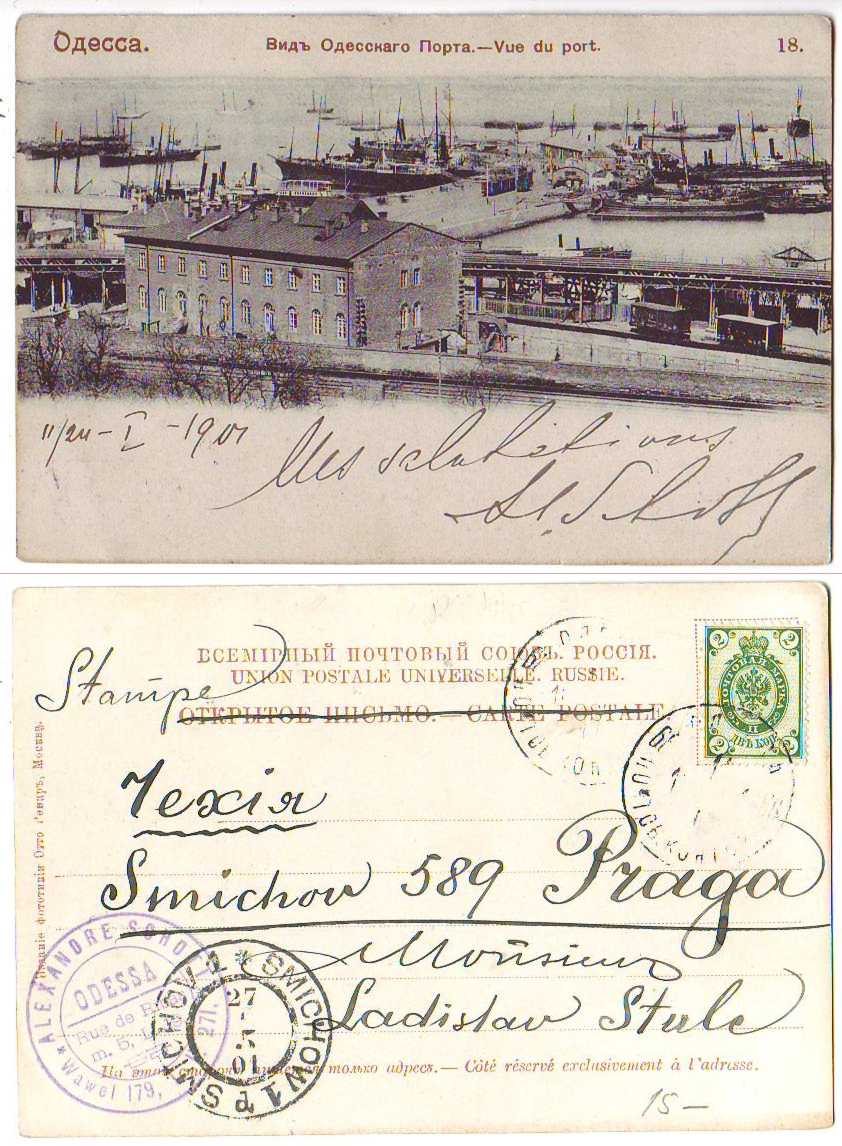 Одесса.
Видъ Одесскаго Порта.—Vue du port.
18.
11/24 - I - 1901
Mes salutations
ВСЕМІРНЫЙ ПОЧТОВЫЙ СОЮЗЪ. РОССІЯ.
UNION POSTALE UNIVERSELLE. RUSSIE.
Stampe
ОТКРЫТОЕ ПИСЬМО.—CARTE POSTALE.
2 2
ПОЧТОВАЯ МАРКА
ДВѢ КОП.
2 2
Чехія
Smichov 589 Praga
Monsieur
Ladislav
Изданіе фототипіи Отто Ренаръ, Москва.
ALEXANDRE
ODESSA
Rue de
m. 5,
Wawel 179, 271.
SMICHOV 1 * SMICHOW 1
27
1
01
На этой сторонѣ пишется только адресъ.—Côté réservé exclusivement à l'adresse.
15-